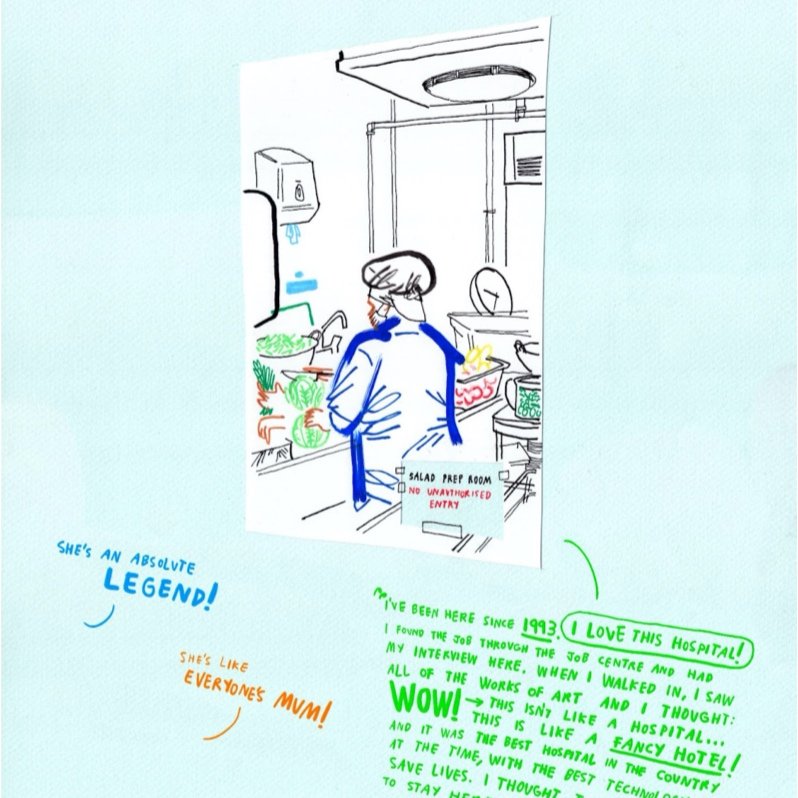 SALAD PREP ROOM
NO UNAUTHORISED
ENTRY
SHE'S AN ABSOLUTE
LEGEND!
SHE'S LIKE
EVERYONE'S MUM!
"I'VE BEEN HERE SINCE 1993. I LOVE THIS HOSPITAL!
I FOUND THE JOB THROUGH THE JOB CENTRE AND HAD
MY INTERVIEW HERE. WHEN I WALKED IN, I SAW
ALL OF THE WORKS OF ART AND I THOUGHT:
WOW! → THIS ISN'T LIKE A HOSPITAL...
THIS IS LIKE A FANCY HOTEL!
AND IT WAS THE BEST HOSPITAL IN THE COUNTRY
AT THE TIME, WITH THE BEST
SAVE LIVES. I THOUGHT
TO STAY